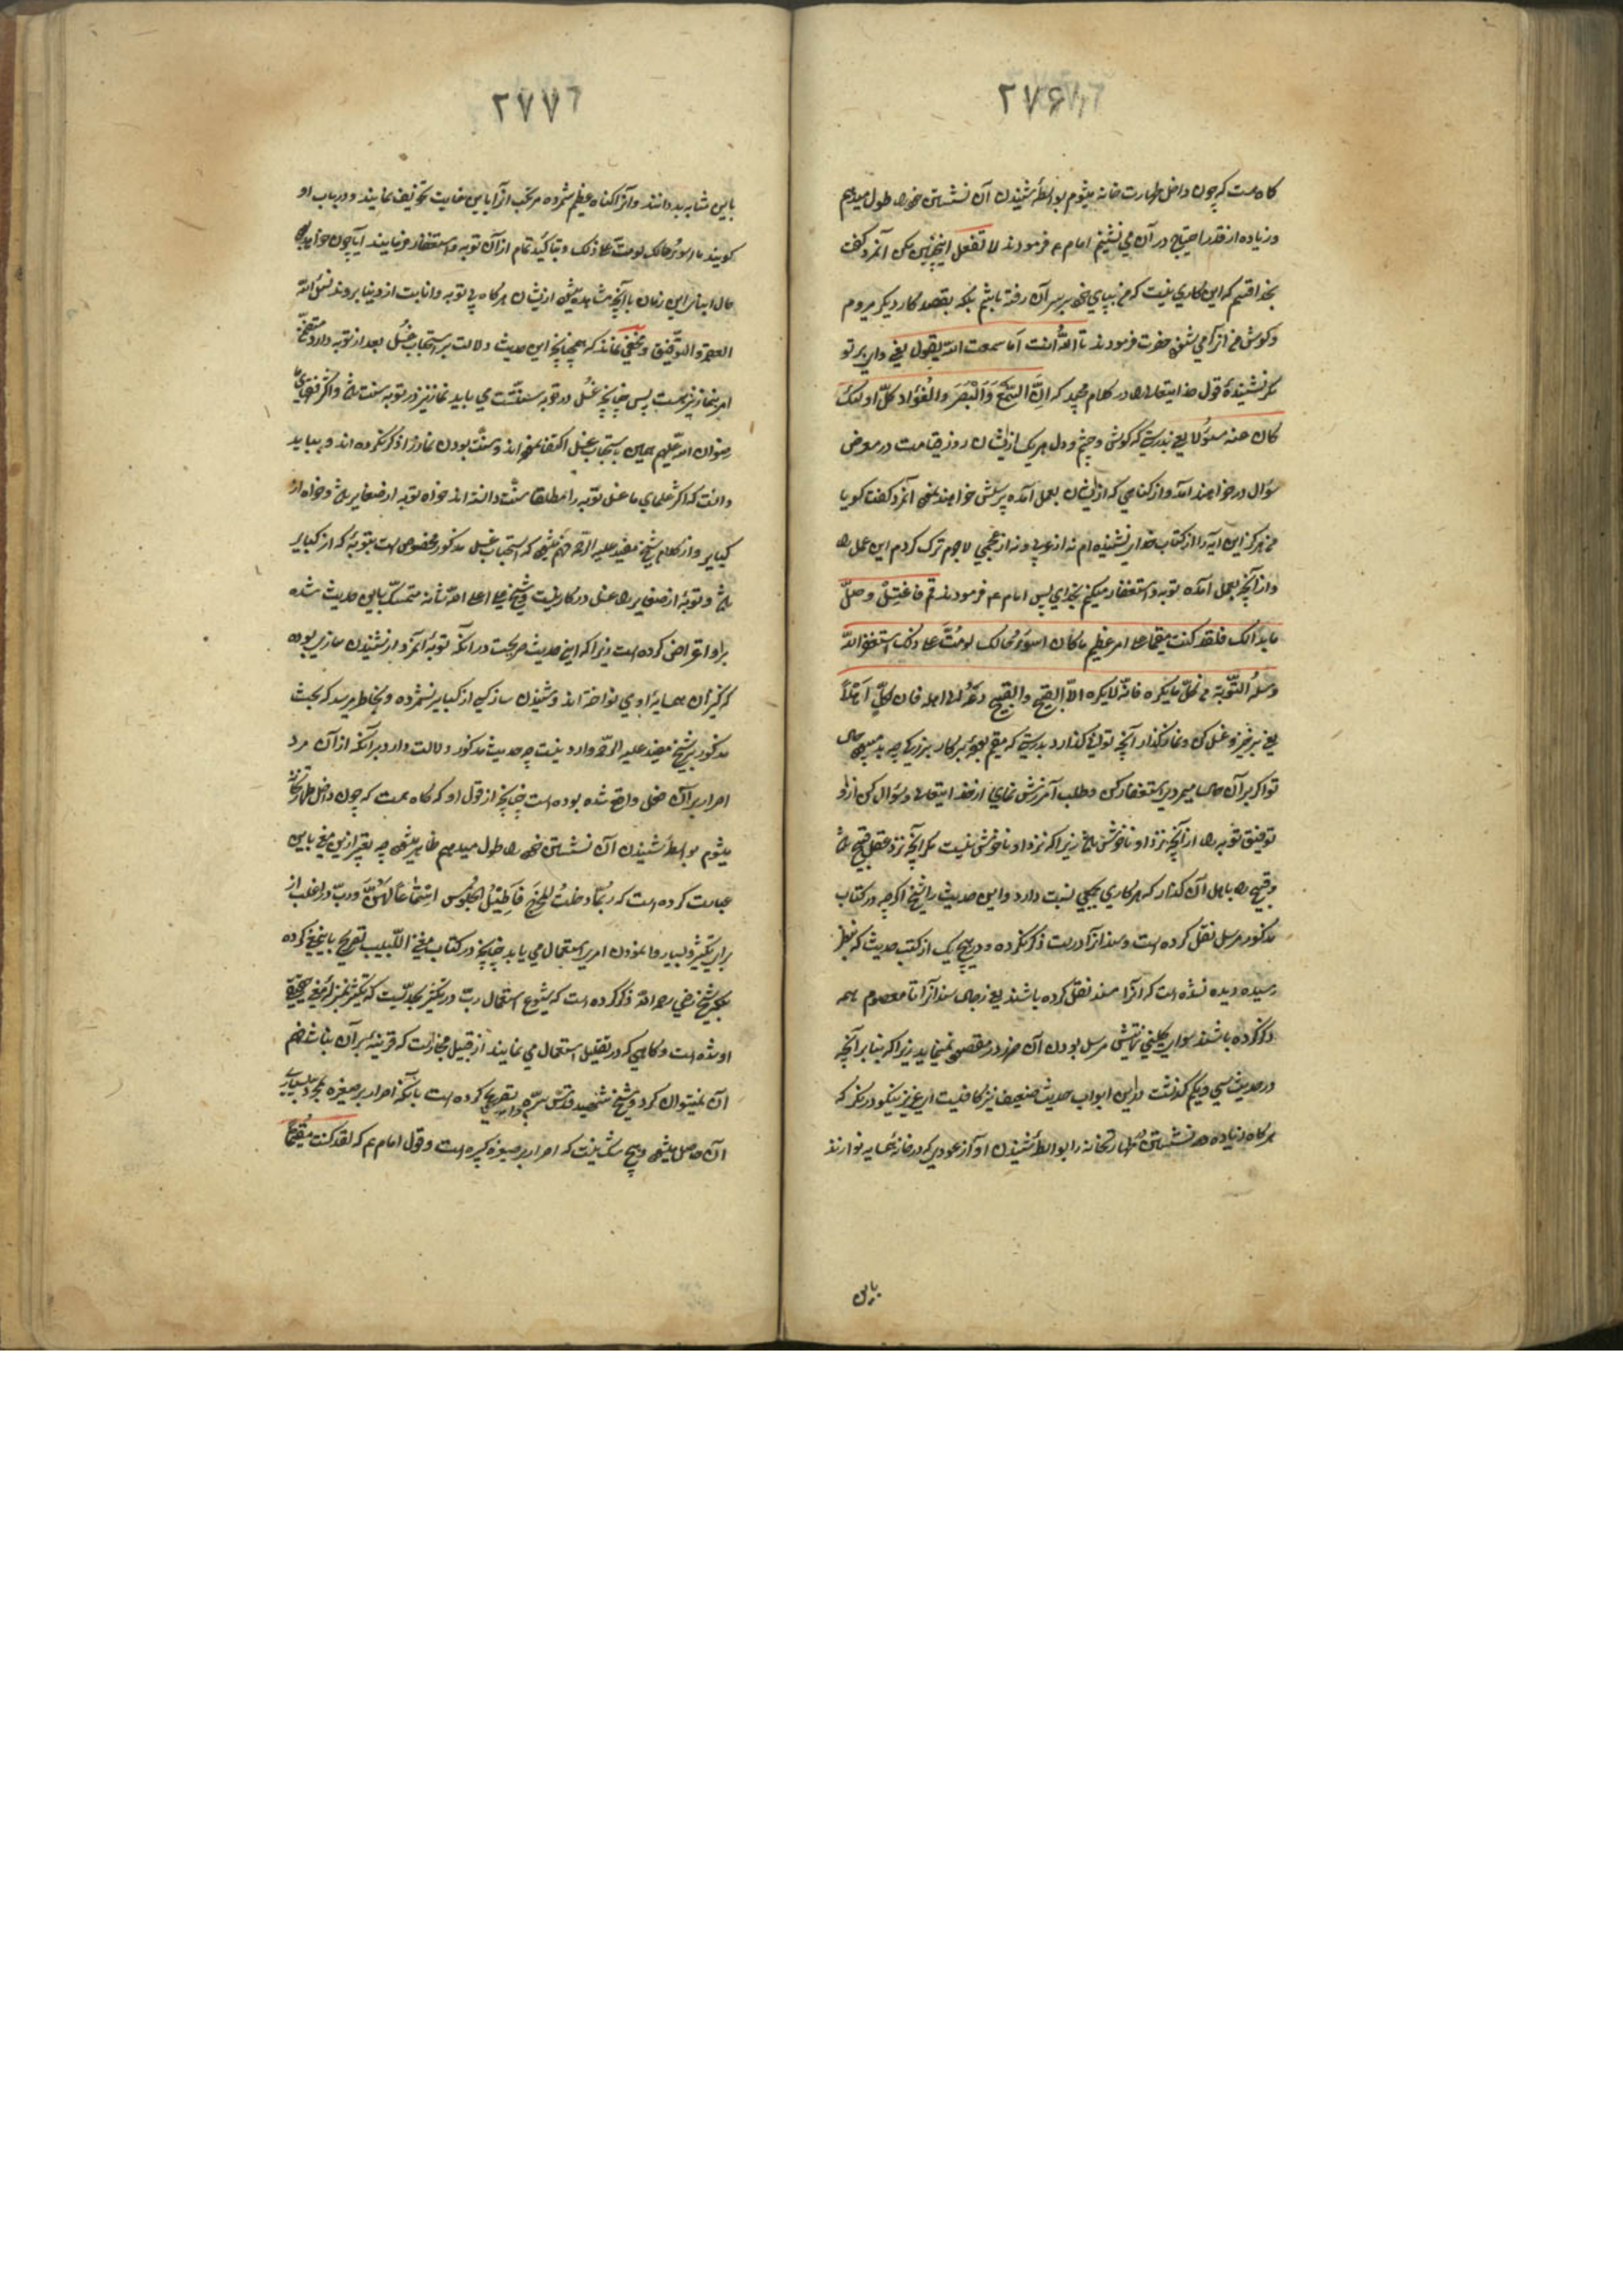 ۲۷۶
کاه هست که چون داخل طهارت خانه میشوم بواسطهٔ شنیدن آن نشستن خود را طول میدهم
و زیاده از قدر احتیاج در آن می نشینم امام ع فرمودند لا تفعل این چنین مکن آنمرد گفت
بخدا قسم که این کاری نیست که من بپای خود بر سر آن رفته باشم بلکه بقصد کار دیگر میروم
و کوش من آنرا می شنود حضرت فرمودند تالله أنت أما سمعت الله یقول یعنی وای بر تو
مگر نشنیدهٔ قول خدایتعالی را در کلام مجید که إنّ السّمع والبصر والفؤاد کلّ اولئک
کان عنه مسؤلا یعنی بدرستی که کوش و چشم و دل هر یک ازیشان روز قیامت در معرض
سؤال در خواهند آمد و از کناهی که ازیشان بعمل آمده پرسش خواهند نمود آنمرد گفت کویا
من هرکز این آیه را از کتاب خدای نشنیده ام نه از عربی و نه از عجمی لاجرم ترک کردم این عمل را
و از آنچه بعمل آمده توبه و استغفار میکنم بخدای پس امام ع فرمودند قم فاغتسل وصلّ
ما بدا لک فلقد کنت مقیما علی امر عظیم ما کان اسوء حالک لو متّ علی ذلک استغفر الله
وسله التّوبة من کلّ ما یکره فانّه لا یکره الّا القبیح والقبیح دعه لاهله فان لکلّ اهلاً
یعنی برخیز و غسل کن و نماز کذار آنچه توانی کذارد بدرستی که مقیم بودهٔ بر کار بزرکی چه بد میبود حال
تو اکر بر آن حال میمردی استغفار کن و طلب آمرزش نمای از خدایتعالی و سؤال کن ازو
توفیق توبه را از آنچه نزد او ناخوش باشد زیرا که نزد او ناخوش نیست مکر آنچه نزد عقل قبیح باشد
و قبیح را باهل آن کذار که هر کاری بکسی نسبت دارد و این حدیث را شیخ اکرچه در کتاب
مذکور مرسل نقل کرده است و سند از آدریت ذکر نکرده و در هیچ یک از کتب حدیث که بنظر
رسیده دیده نشده است که آنرا مسند نقل کرده باشند یعنی رجال سند آنرا تا معصوم همه
ذکر کرده باشند سوای کلینی مرسل بودن آن ضرر در مقصود نمینماید زیرا که بنا بر آنچه
در حدیث سی و یکم کذشت درین ابواب حدیث ضعیف نیز کافیست ای عزیز نیکو در نکر که
هر کاه زیاده نشستن طهارتخانه را بواسطهٔ شنیدن آواز عودی که در خانهٔ همسایه نوازند
باین
۲۷۷
باین مثابه بد دانند و آنرا کناه عظیم شمرده مرتکب آنرا باین غایت تخویف نمایند و در باب او
کویند ما اسوء حالک لو متّ علی ذلک و بتاکید تمام از آن توبه و استغفار فرمایند آیا چون خواهد بود
حال ابناس این زمان با آنچه مشاهد میشود ازیشان هرکاه بی توبه و انابت از دنیا بروند نسئل الله
العصمة والتّوفیق و مخفی نماند که همچنانچه این حدیث دلالت بر استحباب غسل بعد از توبه دارد متضمّن
امر بنماز نیز هست پس چنانچه غسل در توبه سنّت می باید نماز نیز در توبه سنت باشد و اکثر فقهای ما
رضوان الله علیهم همین باستحباب غسل اکتفا نموده اند و سنّت بودن نماز را ذکر نکرده اند و بباید
دانست که اکثر علمای ما غسل توبه را مطلقا سنّت دانسته اند خواه توبه از صغایر باشد و خواه از
کبایر و از کلام شیخ مفید علیه الرّحمه فهم میشود که استحباب غسل مذکور مخصوص است بتوبهٔ که از کبایر
باشد و توبهٔ از صغایر را غسل در کار نیست و شیخ علی اعلی الله شانه متمسّک باین حدیث شده
بر او اعتراض کرده است زیرا که این حدیث صریحست در آنکه توبهٔ آنمرد از شنیدن سازی بوده
که کنیزان همسایهٔ اوی نواخته اند و شنیدن ساز کسی از کبایر نشمرده و بخاطر میرسد که بحث
مذکور بر شیخ مفید علیه الرّحمه وارد نیست چه حدیث مذکور دلالت دارد بر آنکه از آن مرد
اصرار بر آن فعل واقع شده بوده است چنانچه از قول او که کاه هست که چون داخل طهارتخانه
میشوم بواسطهٔ شنیدن آن نشستن خود را طول میدهم ظاهر میشود چه تعبیر ازین معنی باین
عبارت کرده است که ربّما دخلت المخرج فأطیل الجلوس استماعاً لهنّ و ربّ در اغلب از
برای تکثیر و بسیار وانمودن امری استعمال می یابد چنانچه در کتاب مغنی اللّبیب تصریح باین معنی کرده
بلکه شیخ رضی رحمه الله ذکر کرده است که شیوع استعمال ربّ در تکثیر بحدّیست که تکثیر بمنزلهٔ معنی حقیقیّ
او شده است و کاهی که در تقلیل استعمال می نمایند از قبیل مجازست که قرینهٔ بر آن نباشد فهم
آن نمیتوان کرد و شیخ شهید قدّس سرّه تصریح کرده است بآنکه اصرار بر صغیره بمجرّد بسیاری
آن حاصل میشود و هیچ شک نیست که اصرار بر صغیره کبیره است و قول امام ع که لقد کنت مقیماً